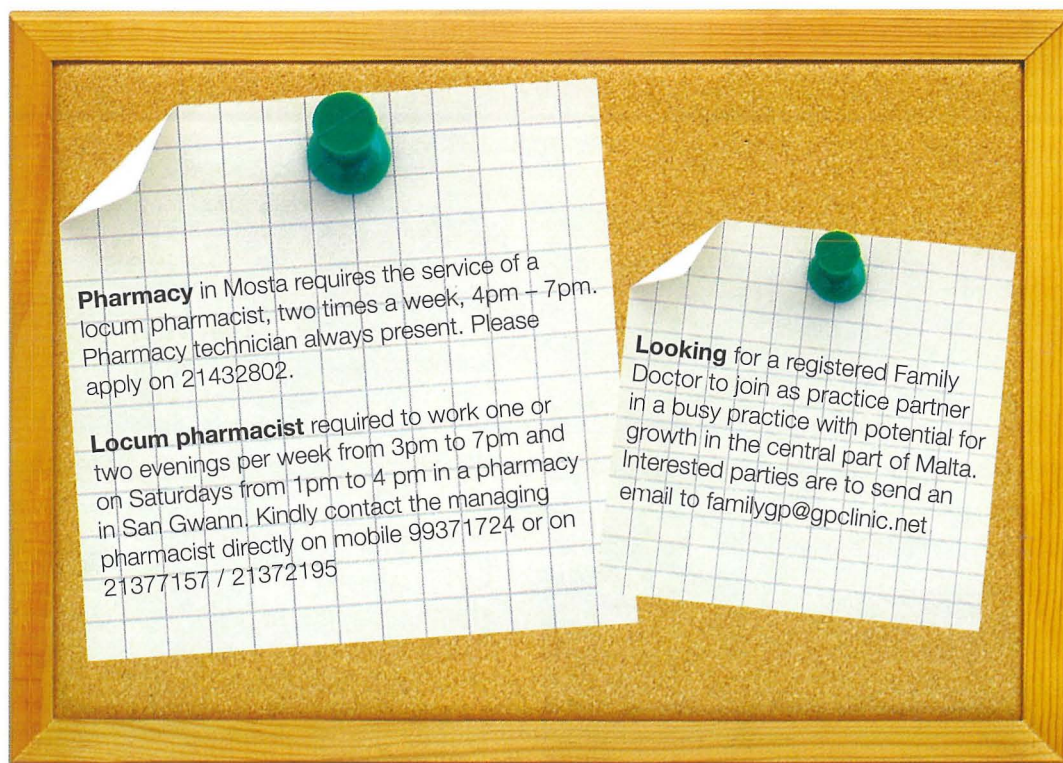 Pharmacy in Mosta requires the service of a
locum pharmacist, two times a week, 4pm – 7pm.
Pharmacy technician always present. Please
apply on 21432802.
Locum pharmacist required to work one or
two evenings per week from 3pm to 7pm and
on Saturdays from 1pm to 4 pm in a pharmacy
in San Gwann. Kindly contact the managing
pharmacist directly on mobile 99371724 or on
21377157 / 21372195
Looking for a registered Family
Doctor to join as practice partner
in a busy practice with potential for
growth in the central part of Malta.
Interested parties are to send an
email to familygp@gpclinic.net